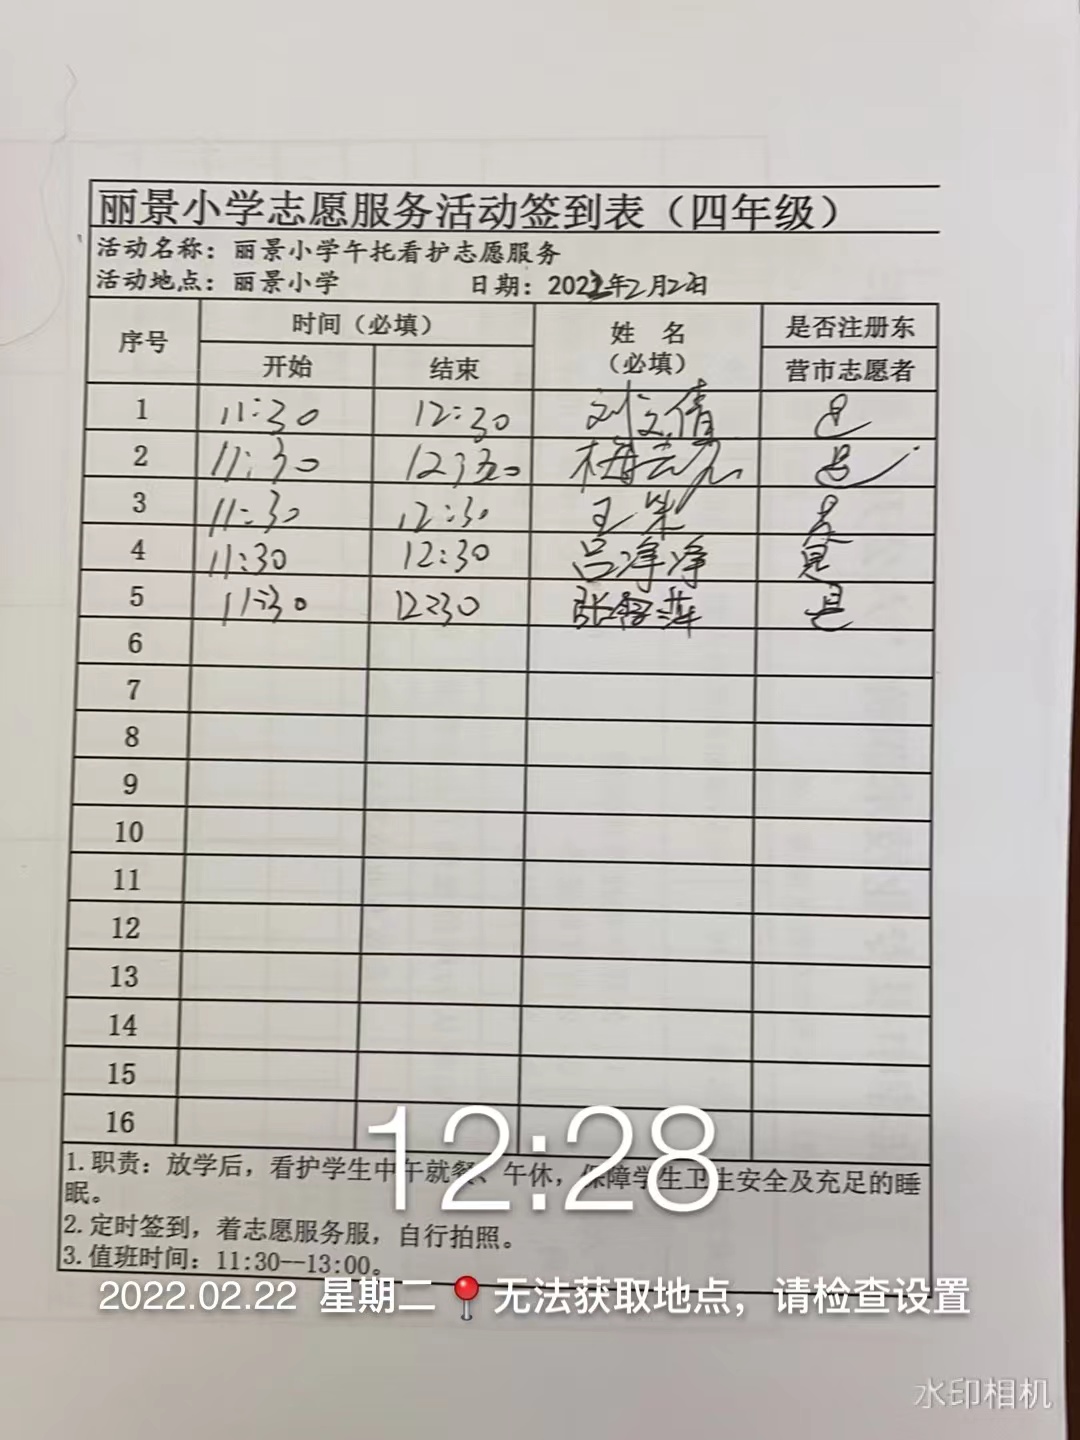 丽景小学志愿服务活动签到表（四年级）
活动名称：丽景小学午托看护志愿服务
活动地点：丽景小学 日期：2022年2月22日
序号 时间（必填） 姓 名（必填） 是否注册东营市志愿者
开始 结束
1 11:30 12:30 刘文倩 是
2 11:30 12:30 梅 是
3 11:30 12:30 王 是
4 11:30 12:30 吕净净 是
5 11:30 12:30 张 萍 是
6
7
8
9
10
11
12
13
14
15
16
1.职责：放学后，看护学生中午就餐、午休，保障学生卫生安全及充足的睡
眠。
2.定时签到，着志愿服务服，自行拍照。
3.值班时间：11:30--13:00。
12:28
2022.02.22 星期二 无法获取地点，请检查设置
水印相机